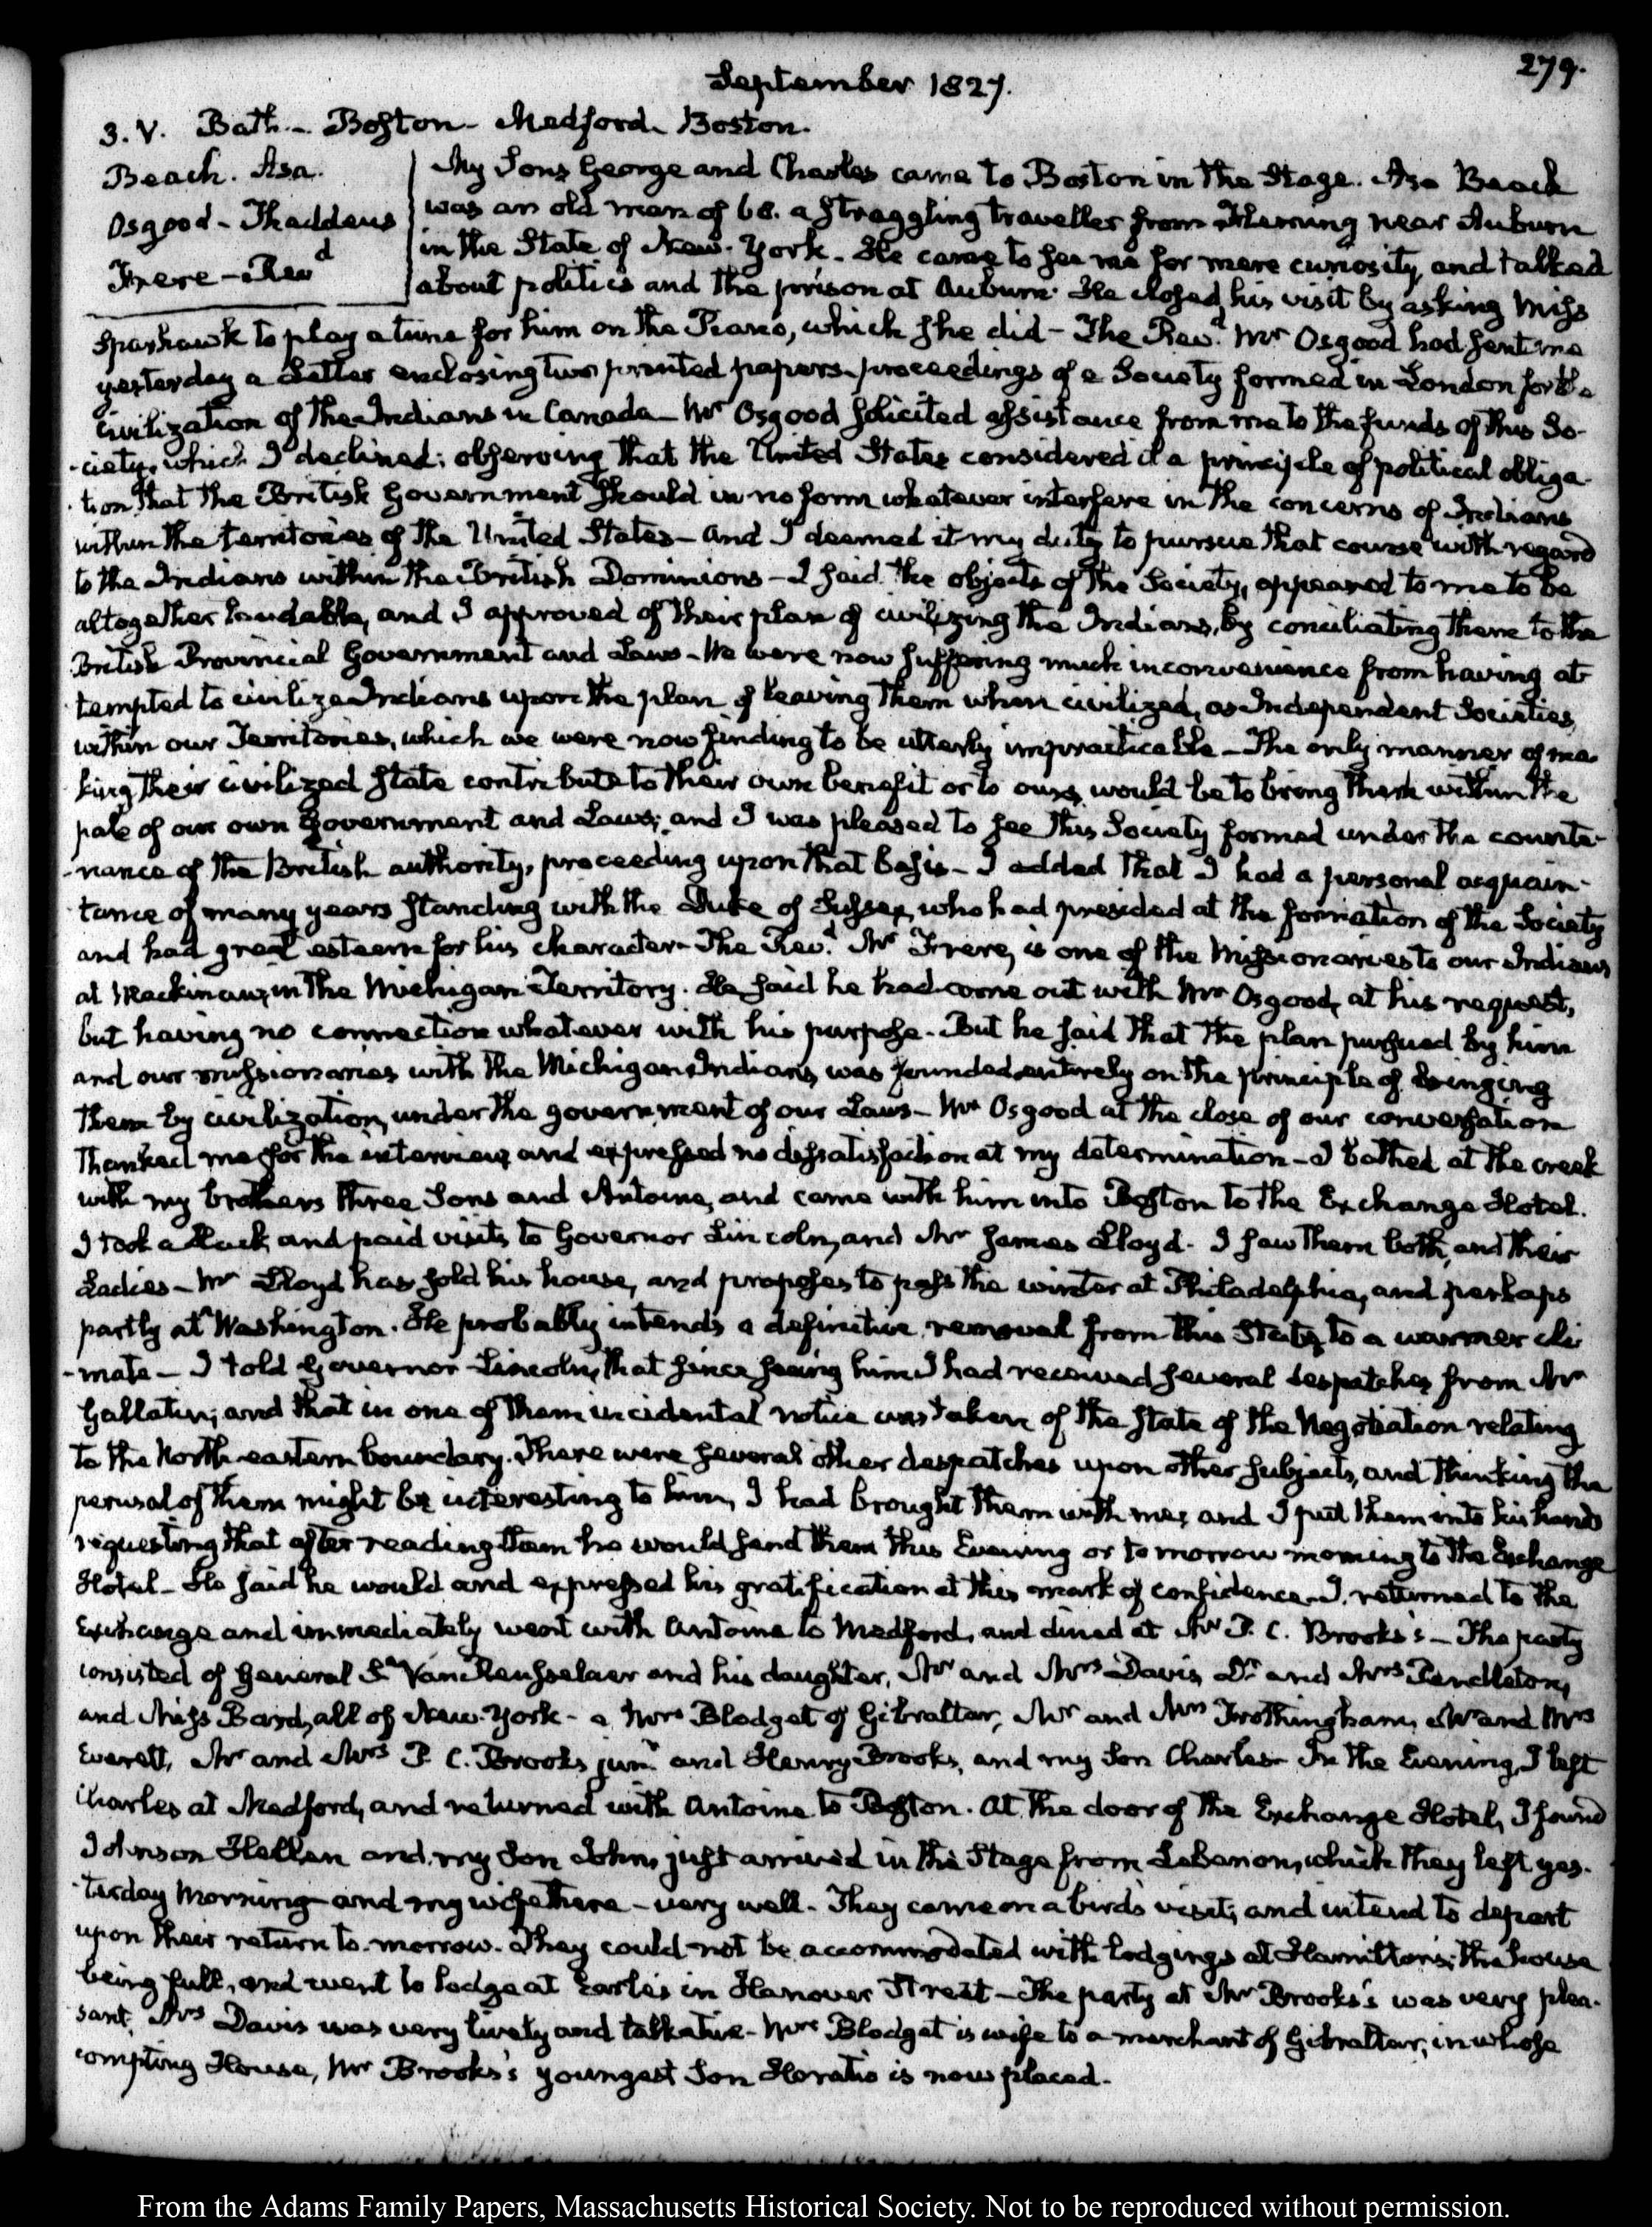 279.
September 1827.
3. V. Bath. - Boston - Medford. Boston.
Beach. Asa.
Osgood - Thaddeus
Frere - Revd
My Sons George and Charles came to Boston in the Stage. Asa Beach
was an old man of 68. a straggling traveller from Fleming near Auburn
in the State of New-York. He came to see me for mere curiosity, and talked
about politics and the prison at Auburn. He closed his visit by asking Miss
Sparhawk to play a tune for him on the Piano, which she did - The Revd. Mr Osgood had sent me
yesterday a Letter enclosing two printed papers - proceedings of a Society formed in London for the
civilization of the Indians in Canada - Mr Osgood solicited assistance from me to the funds of this So-
-ciety, which I declined; observing that the United States considered it a principle of political obliga-
-tion, that the British Government should in no form whatever interfere in the concerns of Indians
within the territories of the United States - and I deemed it my duty to pursue that course with regard
to the Indians within the British Dominions - I said the objects of the Society, appeared to me to be
altogether laudable, and I approved of their plan of civilizing the Indians, by conciliating them to the
British Provincial Government and Laws - We were now suffering much inconvenience from having at-
-tempted to civilize Indians upon the plan of leaving them when civilized, as Independent Societies,
within our Territories, which we were now finding to be utterly impracticable - The only manner of ma-
king their civilized state contribute to their own benefit or to ours, would be to bring them within the
pale of our own Government and Laws; and I was pleased to see this Society formed under the counte-
-nance of the British authority, proceeding upon that basis - I added that I had a personal acquain-
-tance of many years standing with the Duke of Sussex, who had presided at the formation of the Society
and had great esteem for his character - The Revd. Mr Frere, is one of the Missionaries to our Indians
at Mackinaw, in the Michigan Territory. He said he had come out with Mr Osgood, at his request,
but having no connection whatever with his purpose. But he said that the plan pursued by him
and our missionaries with the Michigan Indians, was founded entirely on the principle of bringing
them by civilization, under the government of our Laws - Mr Osgood at the close of our conversation
thanked me for the interview, and expressed no dissatisfaction at my determination - I bathed at the creek
with my brothers three Sons and Antoine, and came with him into Boston to the Exchange Hotel.
I took a Hack, and paid visits to Governor Lincoln, and Mr James Lloyd. I saw them both, and their
Ladies - Mr Lloyd has sold his house, and proposes to pass the winter at Philadelphia, and perhaps
partly at Washington. He probably intends a definitive removal from this State, to a warmer cli-
-mate - I told Governor Lincoln, that since seeing him I had received several despatches from Mr
Gallatin; and that in one of them incidental notice was taken of the state of the Negotiation relating
to the North-eastern boundary. There were several other despatches upon other subjects, and thinking the
perusal of them might be interesting to him, I had brought them with me; and I put them into his hands
requesting that after reading them he would send them this Evening or to morrow morning to the Exchange
Hotel - He said he would and expressed his gratification at this mark of confidence - I returned to the
Exchange and immediately went with Antoine to Medford, and dined at Mr P. C. Brooks's - The party
consisted of General Sn Van Rensselaer and his daughter, Mr and Mrs Davis, Dr and Mrs Pendleton,
and Miss Bard, all of New-York - a Mrs Blodget of Gibraltar, Mr and Mrs Frothingham, Mr and Mrs
Everett, Mr and Mrs P. C. Brooks junr and Henry Brooks, and my Son Charles - In the Evening, I left
Charles at Medford, and returned with Antoine to Boston. At the door of the Exchange Hotel, I found
Johnson Hellen and my Son John, just arrived in the Stage from Lebanon, which they left yes-
-terday Morning - and my wife there - very well. They came on a birds visit; and intend to depart
upon their return to-morrow. They could not be accommodated with lodgings at Hamilton's; the house
being full, and went to lodge at Earle's in Hanover Street - The party at Mr Brooks's was very plea-
sant, Mrs Davis was very lively and talkative - Mrs Blodget is wife to a merchant of Gibraltar; in whose
compting House, Mr Brooks's youngest Son Horatio is now placed.
From the Adams Family Papers, Massachusetts Historical Society. Not to be reproduced without permission.